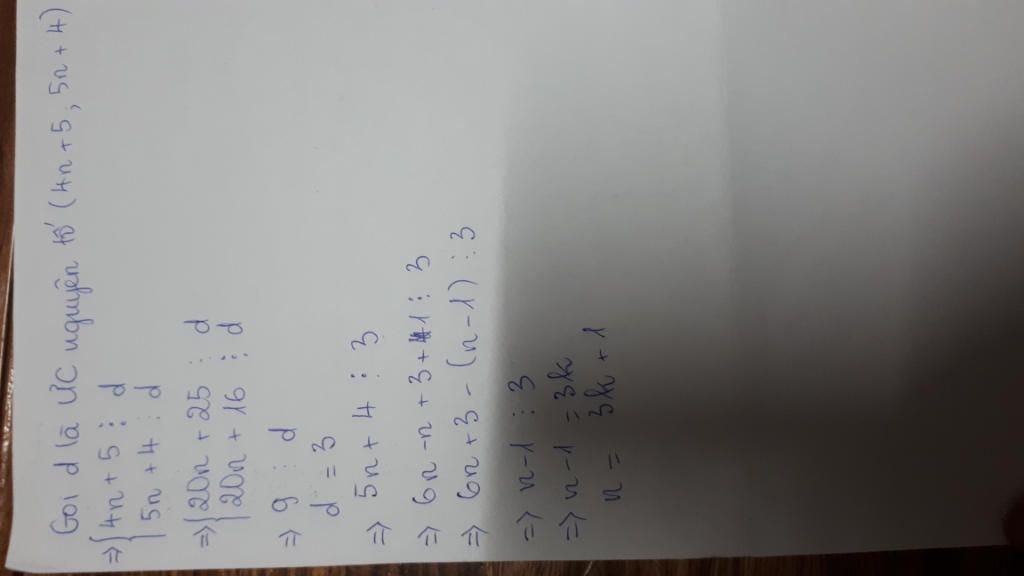 Gọi d là ƯC nguyên tố (4n+5; 5n+4)
=> { 4n+5 ⋮ d
5n+4 ⋮ d
=> { 20n+25 ⋮ d
20n+16 ⋮ d
=> 9 ⋮ d
d = 3
=> 5n+4 ⋮ 3
=> 6n-n+3+1 ⋮ 3
=> 6n+3-(n-1) ⋮ 3
=> n-1 ⋮ 3
=> n-1 = 3k
n = 3k+1